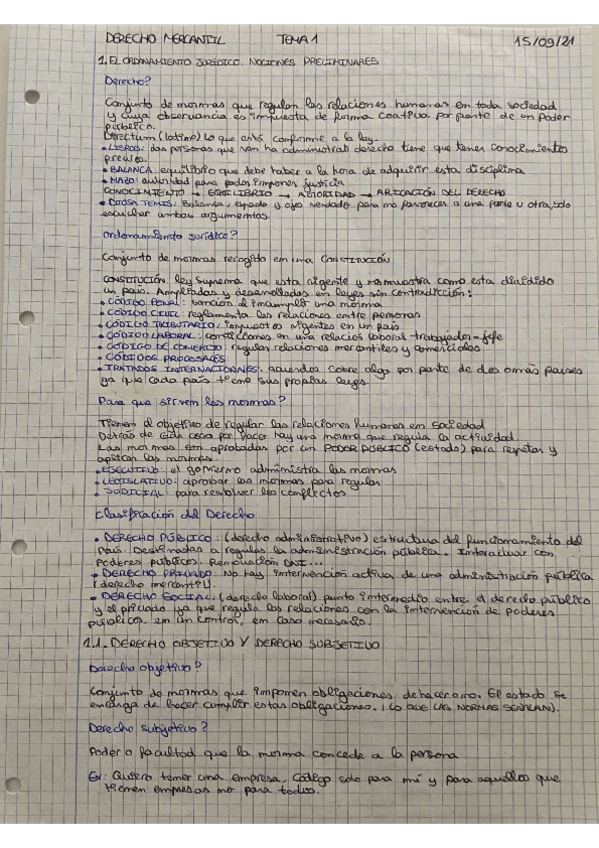 DERECHO MERCANTIL TEMA 1 15/09/21
1. EL ORDENAMIENTO JURÍDICO. NOCIONES PRELIMINARES
Derecho?
Conjunto de normas que regulan las relaciones humanas en toda sociedad
y cuya observancia es impuesta de forma coativa por parte de un Poder
público.
Derectum (latino) Lo que está conforme a la ley.
• LIBROS: las personas que van ha administrar derecho tiene que tener conocimientos
previos.
• BALANZA: equilibrio que debe haber a la hora de adquirir esta disciplina
• MAZO: autoridad para poder imponer justicia
CONOCIMIENTO → EQUILIBRIO → AUTORIDAD → APLICACIÓN DEL DERECHO
• DIOSA TEMIS: Balanza, espada y ojo vendado para no favorecer a una parte u otra, solo
escuchar ambos argumentos
Ordenamiento jurídico?
Conjunto de normas recogido en una CONSTITUCIÓN
CONSTITUCIÓN: ley suprema que esta vigente y nos muestra como esta dividido
un país. Ampliadas y desarrolladas en leyes sin contradicción:
• CÓDIGO PENAL: sanción al incumplir una norma
• CÓDIGO CIVIL: reglamenta las relaciones entre personas
• CÓDIGO TRIBUTARIO: impuestos vigentes en un país
• CÓDIGO LABORAL: condiciones en una relación laboral trabajador-jefe
• CÓDIGO DE COMERCIO: regular relaciones mercantiles y comerciales
• CÓDIGOS PROCESALES
• TRATADOS INTERNACIONALES: acuerdos sobre algo por parte de dos o más países
ya que cada país tiene sus propias leyes.
Para que sirven las normas?
Tienen el objetivo de regular las relaciones humanas en sociedad
Detrás de cada cosa por hacer hay una norma que regula la actividad.
Las normas son aprobadas por un PODER PÚBLICO (estado) para respetar y
aplicar las normas.
• EJECUTIVO: el gobierno administra las normas
• LEGISLATIVO: aprobar las normas para regular
• JUDICIAL: para resolver los conflictos
Clasificación del Derecho
• DERECHO PÚBLICO: (derecho administrativo) estructura del funcionamiento del
País. Destinadas a regular la administración pública. Interactuar con
poderes públicos. Renovación DNI...
• DERECHO PRIVADO: No hay intervención activa de una administración pública
(derecho mercantil)
• DERECHO SOCIAL: (derecho laboral) punto intermedio entre el derecho público
y el privado ya que regula las relaciones con la intervención de poderes
públicos en un control, en caso necesario.
1.1. DERECHO OBJETIVO Y DERECHO SUBJETIVO
Derecho objetivo?
Conjunto de normas que imponen obligaciones, de hacer o no. El estado se
encarga de hacer cumplir estas obligaciones. (LO QUE LAS NORMAS SEÑALAN).
Derecho subjetivo?
Poder o facultad que la norma concede a la persona
Ex: Quiero tener una empresa, código solo para mí y para aquellos que
tienen empresas no para todos.